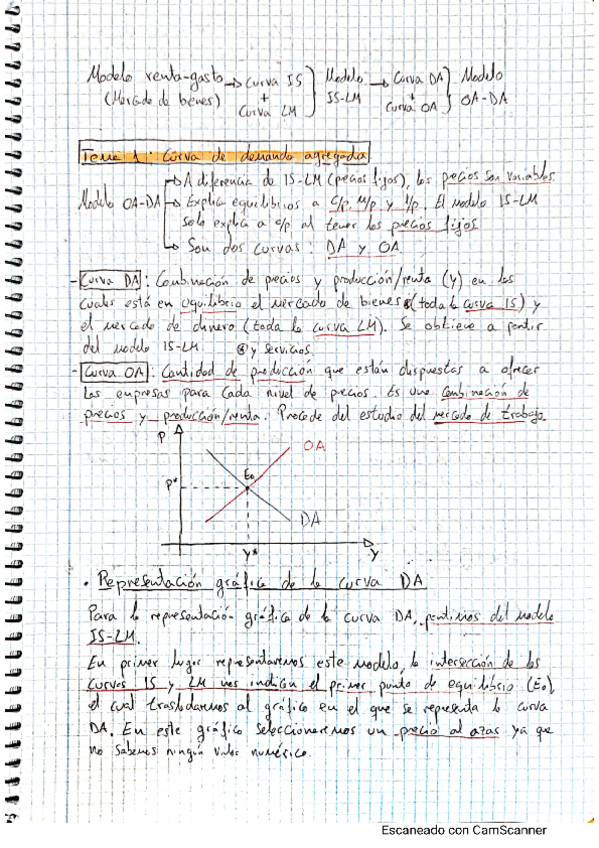 Modelo renta-gasto → Curva IS } Modelo → Curva DA } Modelo
(Mercado de bienes) + Curva LM } IS-LM + Curva OA } OA-DA
Tema 1: Curva de demanda agregada
Modelo OA-DA
→ A diferencia de IS-LM (precios fijos), los precios son variables.
→ Explica equilibrios a c/p, m/p y l/p. El modelo IS-LM
solo explica a c/p al tener los precios fijos
→ Son dos curvas: DA y OA
- Curva DA: Combinación de precios y producción/renta (Y) en los
cuales está en equilibrio el mercado de bienes⊗(toda la curva IS) y
el mercado de dinero (toda la curva LM). Se obtiene a partir
del modelo IS-LM. ⊗ y servicios.
- Curva OA: Cantidad de producción que están dispuestas a ofrecer
las empresas para cada nivel de precios. Es una combinación de
precios y producción/renta. Procede del estudio del mercado de trabajo.
P
OA
E₀
P*
DA
Y*
Y
• Representación gráfica de la curva DA
Para la representación gráfica de la curva DA, partimos del modelo
IS-LM.
En primer lugar representaremos este modelo, la intersección de las
curvas IS y LM nos indican el primer punto de equilibrio (E₀)
el cual trasladamos al gráfico en el que se representa la curva
DA. En este gráfico seleccionaremos un precio al azar ya que
no sabemos ningún valor numérico.
Escaneado con CamScanner